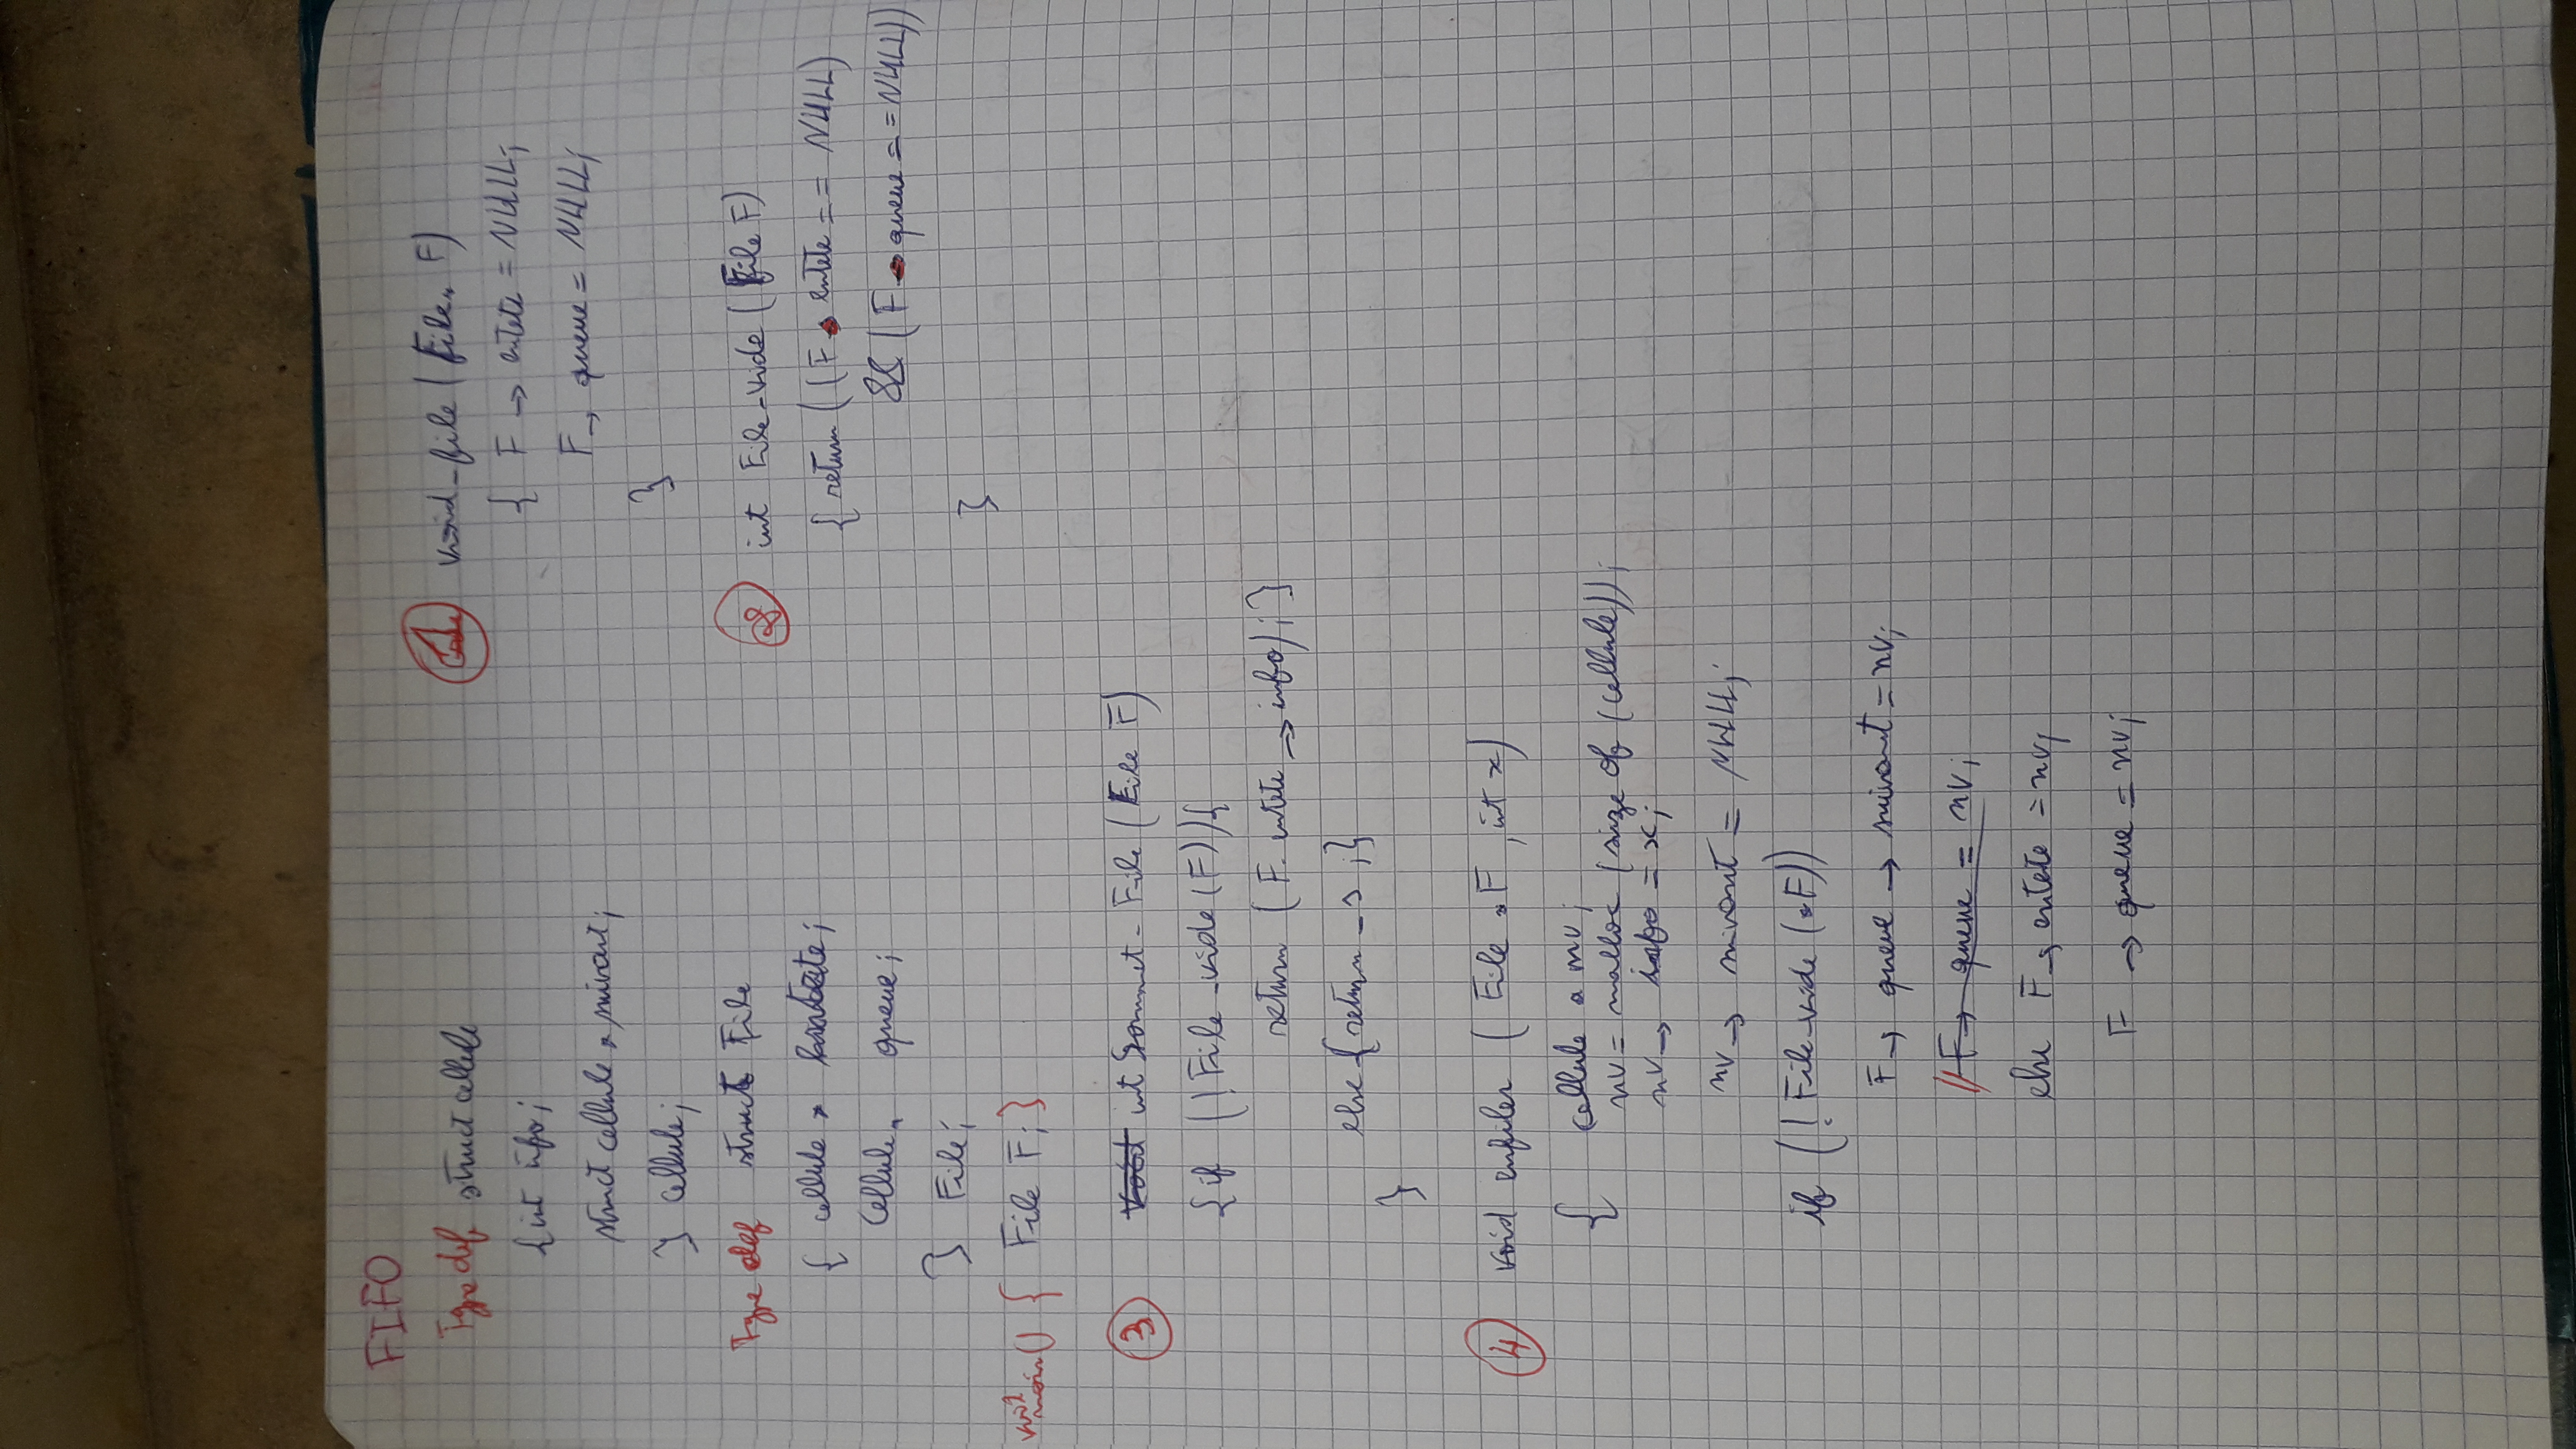 FIFO
Type def struct cellule
{int info;
struct cellule * suivant;
} cellule;
Type def struct File
{ cellule * entete;
cellule * queue;
} File;
void main() { File F; }
1 void_file (File * F)
{ F → entete = NULL;
F → queue = NULL;
}
2 int File_vide (File F)
{ return ((F . entete == NULL)
&& (F . queue == NULL))
}
3 void int Sommet_File (File F)
{if (!File_vide(F)){
return (F. entete → info); }
else {return -1 ;}
}
4 void enfiler ( File * F , int x)
{ cellule * nv;
nv = malloc (size of (cellule));
nv → info = x;
nv → suivant = NULL;
if (! File_vide (*F))
F → queue → suivant = nv;
// F → queue = nv;
else F → entete = nv;
F → queue = nv;